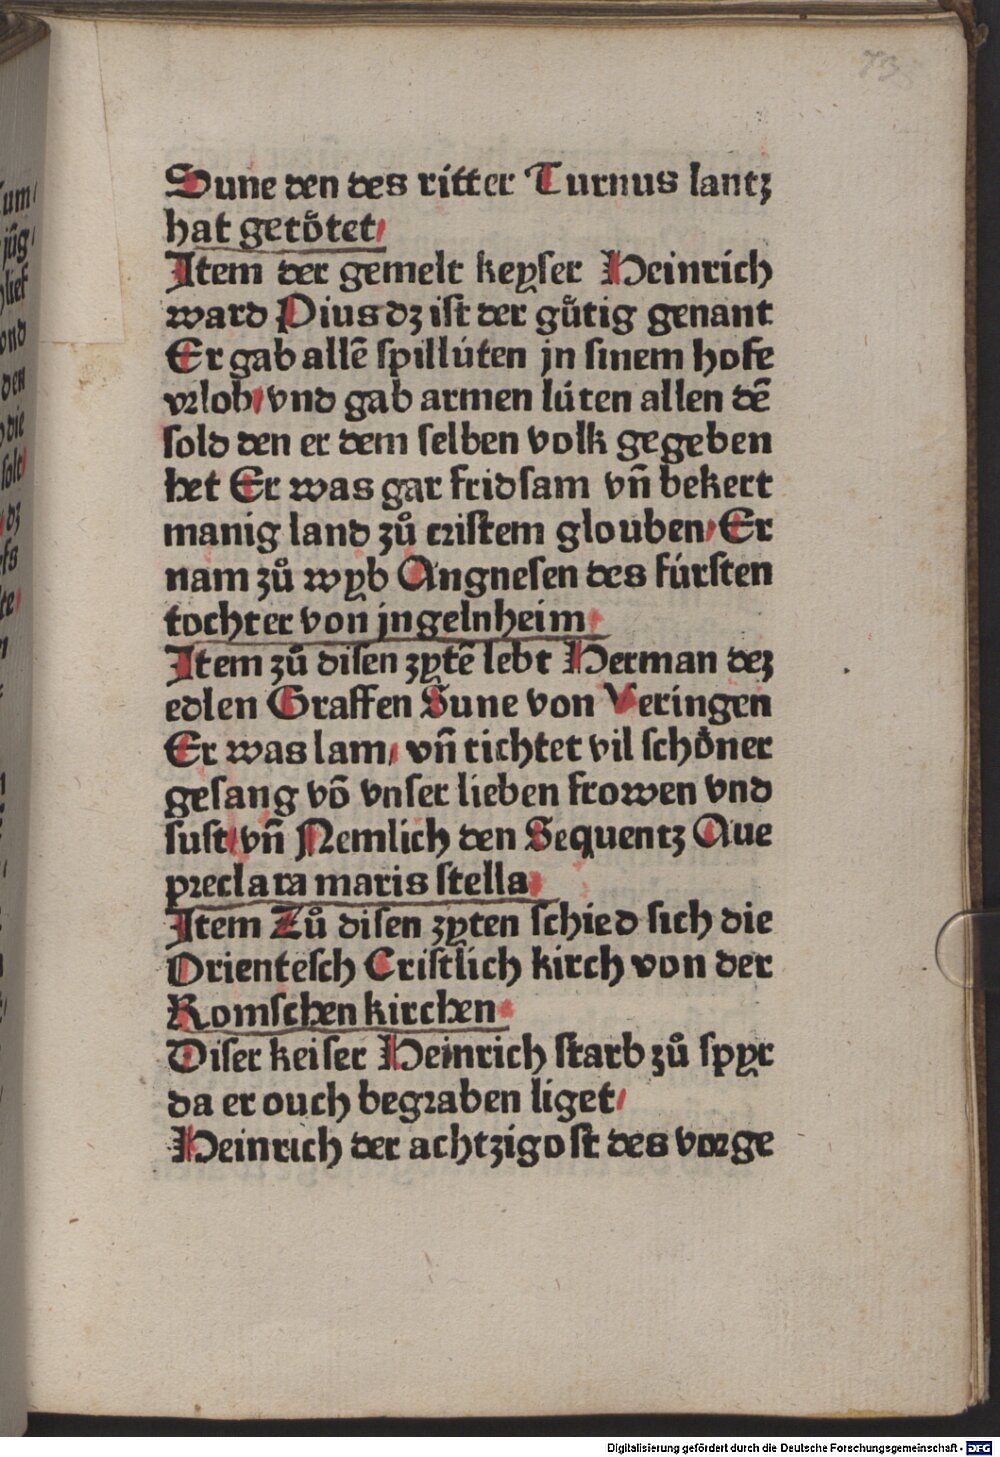 73
Sune den des ritter Turnus lantz
hat getoͤtet/
Item der gemelt keyser Heinrich
ward Pius dz ist der guͤtig genant
Er gab allē spillúten jn sinem hofe
vrlob/ vnd gab armen lúten allen dē
sold den er dem selben volk gegeben
het Er was gar fridsam vn̄ bekert
manig land zuͦ cristem glouben/ Er
nam zuͦ wyb Angnesen des fúrsten
tochter von jngelnheim
Item zuͦ disen zytē lebt Herman dez
edlen Graffen Sune von Veringen
Er was lam/ vn̄ tichtet vil schoͤner
gesang vō vnser lieben frowen vnd
sust/ vn̄ Nemlich den Sequentz Aue
preclara maris stella
Item Zuͦ disen zyten schied sich die
Orientesch Cristlich kirch von der
Romschen kirchen
Diser keiser Heinrich starb zuͦ spyr
da er ouch begraben liget/
Heinrich der achtzigost des vorge
Digitalisierung gefördert durch die Deutsche Forschungsgemeinschaft - DFG